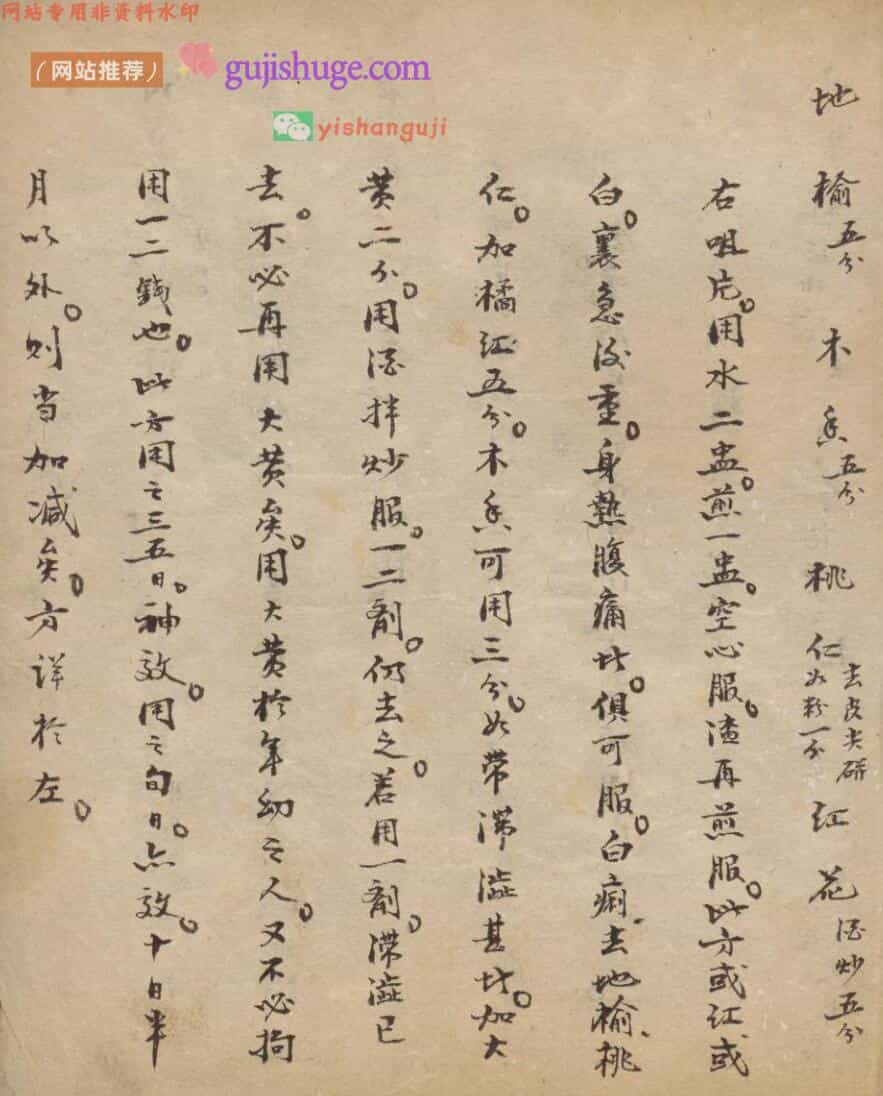 网站专用非资料水印
（网站推荐） gujishuge.com
yishanguji
地榆五分 木香五分 桃仁去皮尖研如粉一分 红花酒炒五分
右咀片。用水二盅。煎一盅。空心服。渣再煎服。此方或红或
白。裏急後重。身熱腹痛者。俱可服。白痢、去地榆、桃
仁。加橘红五分。木香可用三分。如带滞澁甚者。加大
黄二分。用酒拌炒服。一二剂。仍去之。若用一剂。滞澁已
去。不必再用大黄矣。用大黄於年幼之人。又不必拘
用一二錢也。此方用之三五日。神效。用之旬日。亦效。十日半
月以外。则当加减矣。方详於左。